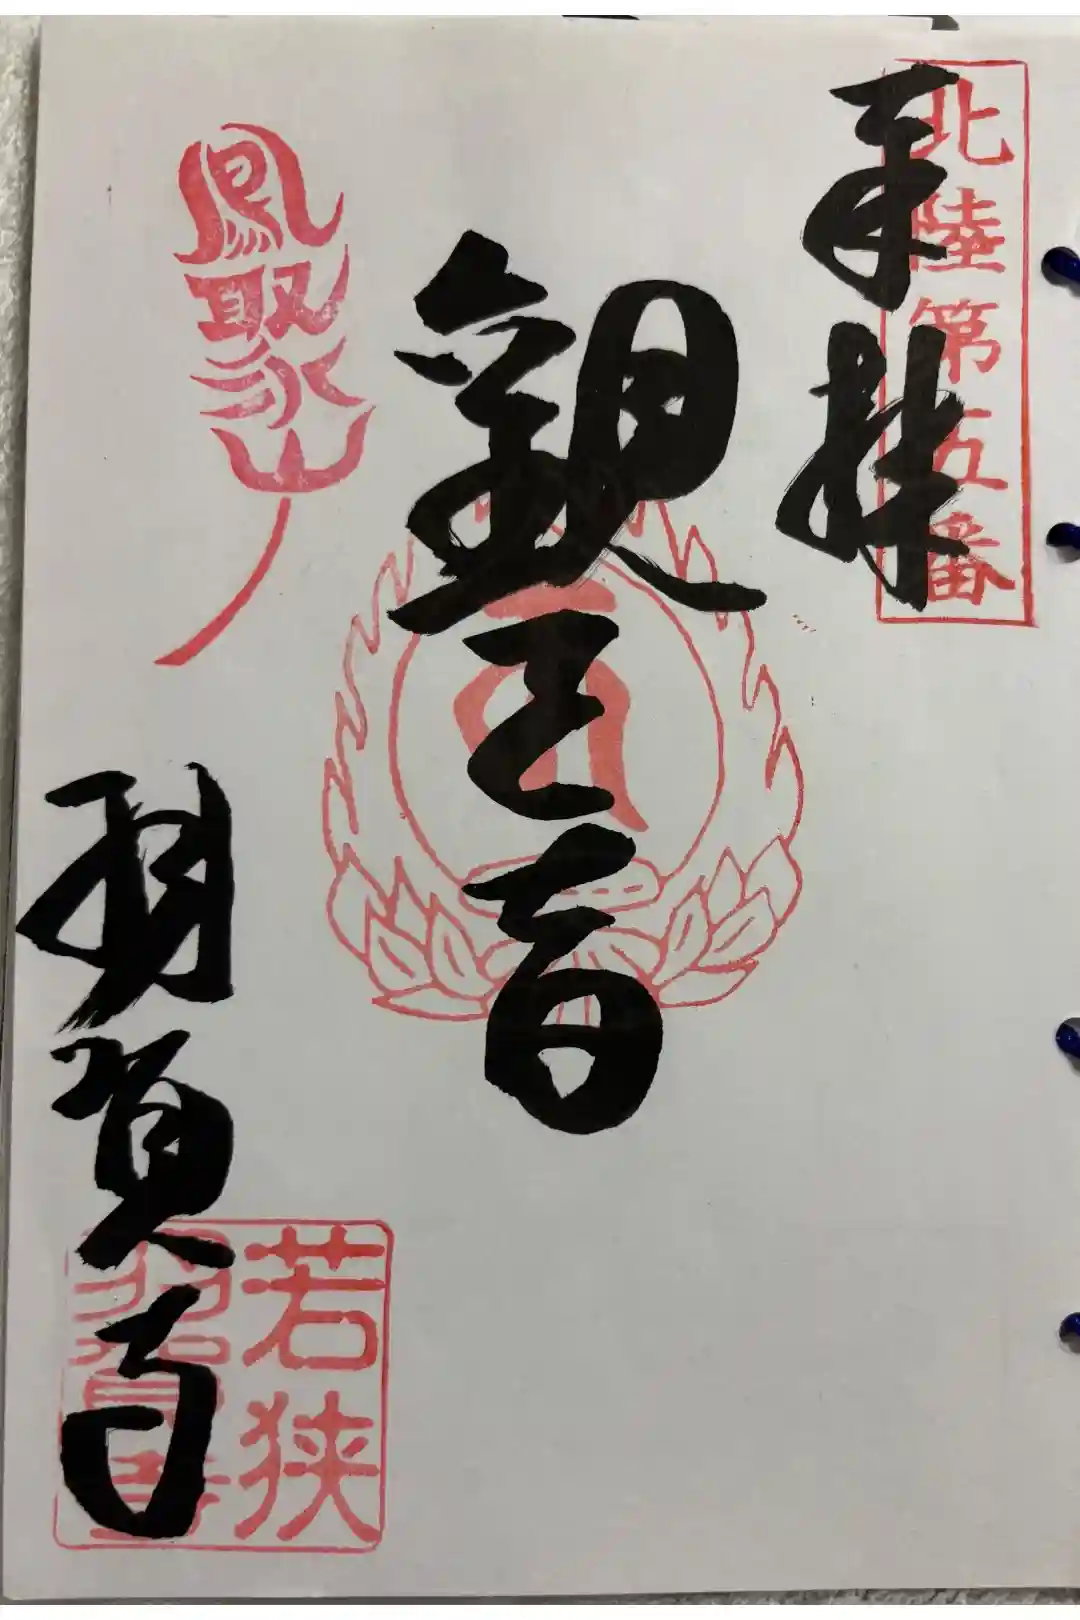 北陸第五番
奉拝
観世音
鳳聚山
羽賀寺
若狭
羽賀寺